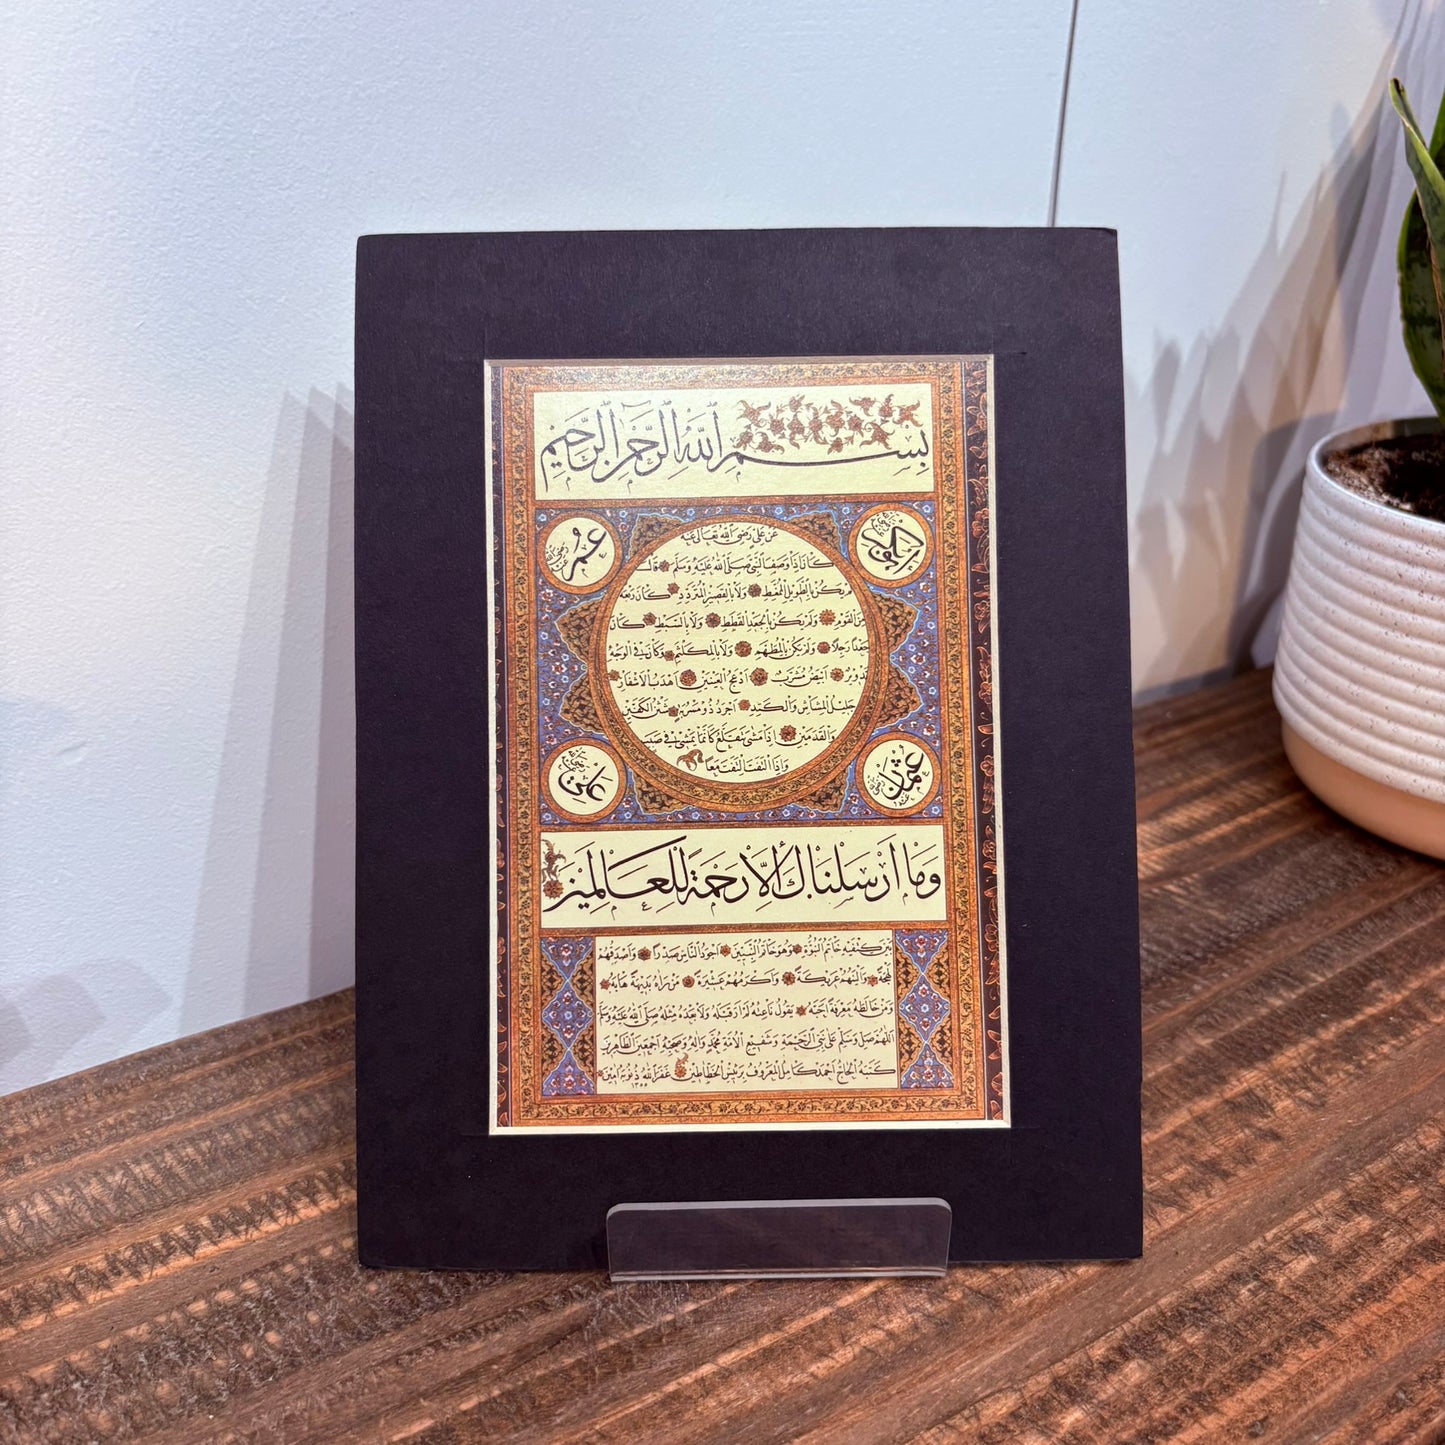 بِسْمِ ٱللَّهِ ٱلرَّحْمَٰنِ ٱلرَّحِيمِ
عَنْ عَلِيٍّ رَضِيَ اللهُ تَعَالَى عَنْهُ
كَانَ إِذَا وَصَفَ النَّبِيَّ صَلَّى اللهُ عَلَيْهِ وَسَلَّمَ قَالَ
لَمْ يَكُنْ بِالطَّوِيلِ الْمُمَّغِطِ وَلَا بِالْقَصِيرِ الْمُتَرَدِّدِ كَانَ رَبْعَةً
مِنَ الْقَوْمِ وَلَمْ يَكُنْ بِالْجَعْدِ الْقَطَطِ وَلَا بِالسَّبِطِ كَانَ
جَعْدًا رَجِلًا وَلَمْ يَكُنْ بِالْمُطَهَّمِ وَلَا بِالْمُكَلْثَمِ وَكَانَ فِي الْوَجْهِ
تَدْوِيرٌ أَبْيَضُ مُشْرَبٌ أَدْعَجُ الْعَيْنَيْنِ أَهْدَبُ الْأَشْفَارِ
جَلِيلُ الْمُشَاشِ وَالْكَتَدِ أَجْرَدُ ذُو مَسْرُبَةٍ شَثْنُ الْكَفَّيْنِ
وَالْقَدَمَيْنِ إِذَا مَشَى يَتَقَلَّعُ كَأَنَّمَا يَمْشِي فِي صَبَبٍ
وَإِذَا الْتَفَتَ الْتَفَتَ مَعًا
عُمَرُ رضي الله عنه
عُثْمَانُ رضي الله عنه
عَلِيٌّ
وَمَا أَرْسَلْنَاكَ إِلَّا رَحْمَةً لِلْعَالَمِينَ
بَيْنَ كَتِفَيْهِ خَاتَمُ النُّبُوَّةِ وَهُوَ خَاتَمُ النَّبِيِّينَ أَجْوَدُ النَّاسِ صَدْرًا وَأَصْدَقُهُمْ
لَهْجَةً وَأَلْيَنُهُمْ عَرِيكَةً وَأَكْرَمُهُمْ عَشِيرَةً مَنْ رَآهُ بَدِيهَةً هَابَهُ
وَمَنْ خَالَطَهُ مَعْرِفَةً أَحَبَّهُ يَقُولُ نَاعِتُهُ لَمْ أَرَ قَبْلَهُ وَلَا بَعْدَهُ مِثْلَهُ صَلَّى اللهُ عَلَيْهِ وَسَلَّمَ
اللَّهُمَّ صَلِّ وَسَلِّمْ عَلَى نَبِيِّ الرَّحْمَةِ وَشَفِيعِ الْأُمَّةِ مُحَمَّدٍ وَآلِهِ وَصَحْبِهِ أَجْمَعِينَ الطَّاهِرِينَ
كَتَبَهُ الْحَاجُّ أَحْمَدُ كَامِلُ الْمَعْرُوفُ بِرَئِيسِ الْخَطَّاطِينَ غَفَرَ اللهُ ذُنُوبَهُ آمِينَ ١٣٥٥